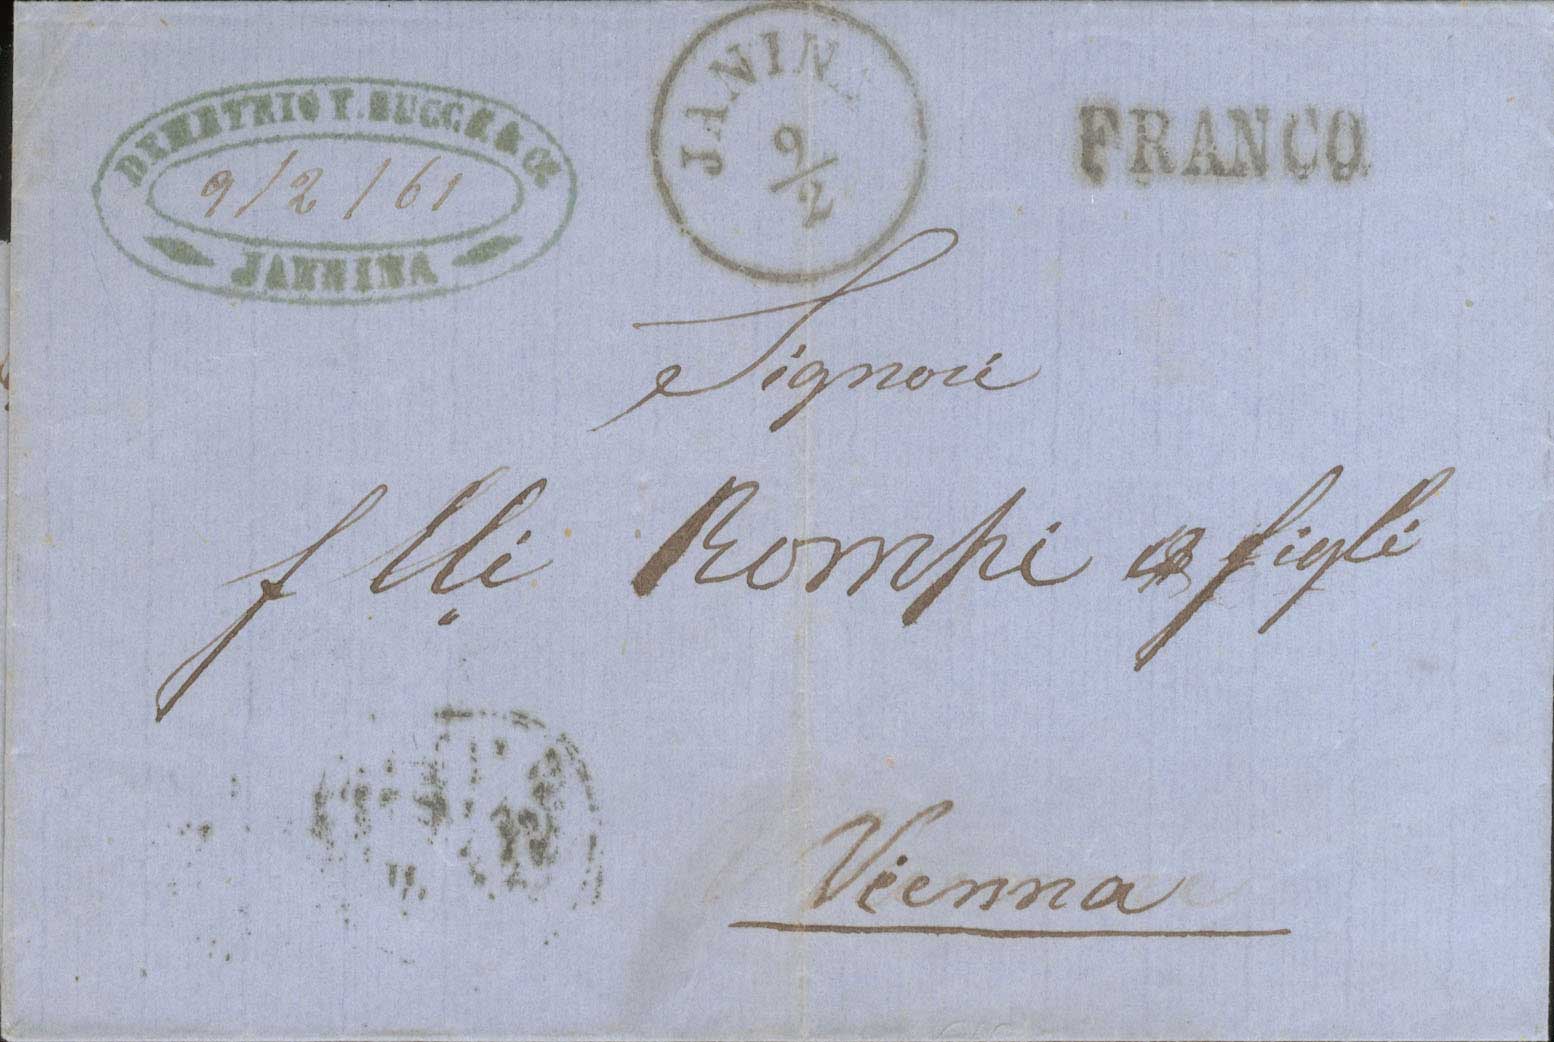 DEMETRIO T. BUCCE & Co.
9/2/61
JANNINA
JANINA
9/2
FRANCO
Signori
flli Rompi & figli
Vienna